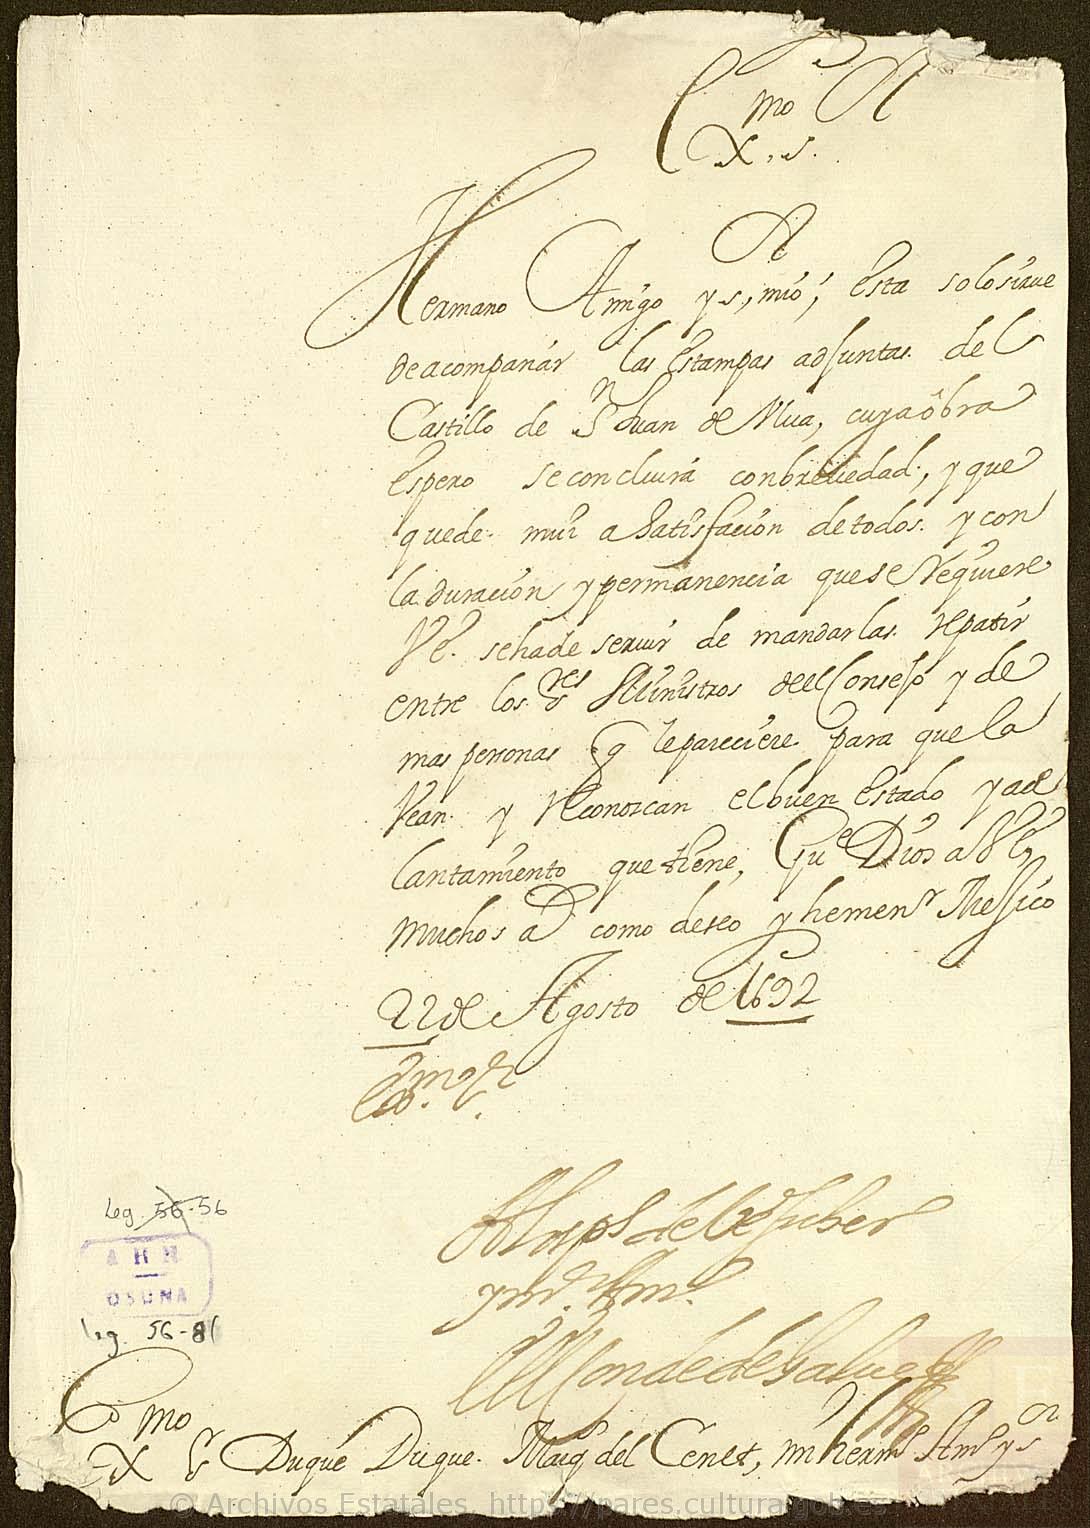 Ex.mo S.r
Hermano Amigo y s.r mio, esta solo sirve
de acompañar las estampas adjuntas del
Castillo de S.n Juan de Vlua, cuya obra
espero se concluira con brevedad, y que
quede mui a satisfacion de todos y con
la duracion y permanencia que se requiere
V.E. se ha de seruir de mandarlas repatir
entre los s.res Ministros de el Consejo y de
mas personas q le pareciere para que la
vean y reconozcan el buen estado y ade
lantamiento que tiene, Gu.e Dios a V.E.
muchos a.s como deseo y he men.r Mexico
22 de Agosto de 1692
Ex.mo S.r
de V.E. su ser.r
y m.r Am.o
El Conde de Galue
Leg. 56-56
A H N
OSUNA
Leg. 56-81
Ex.mo S.r Duque Duque. Marq del Cenet, mi herm.o Am.o y s.or
© Archivos Estatales, https://pares.cultura.gob.es